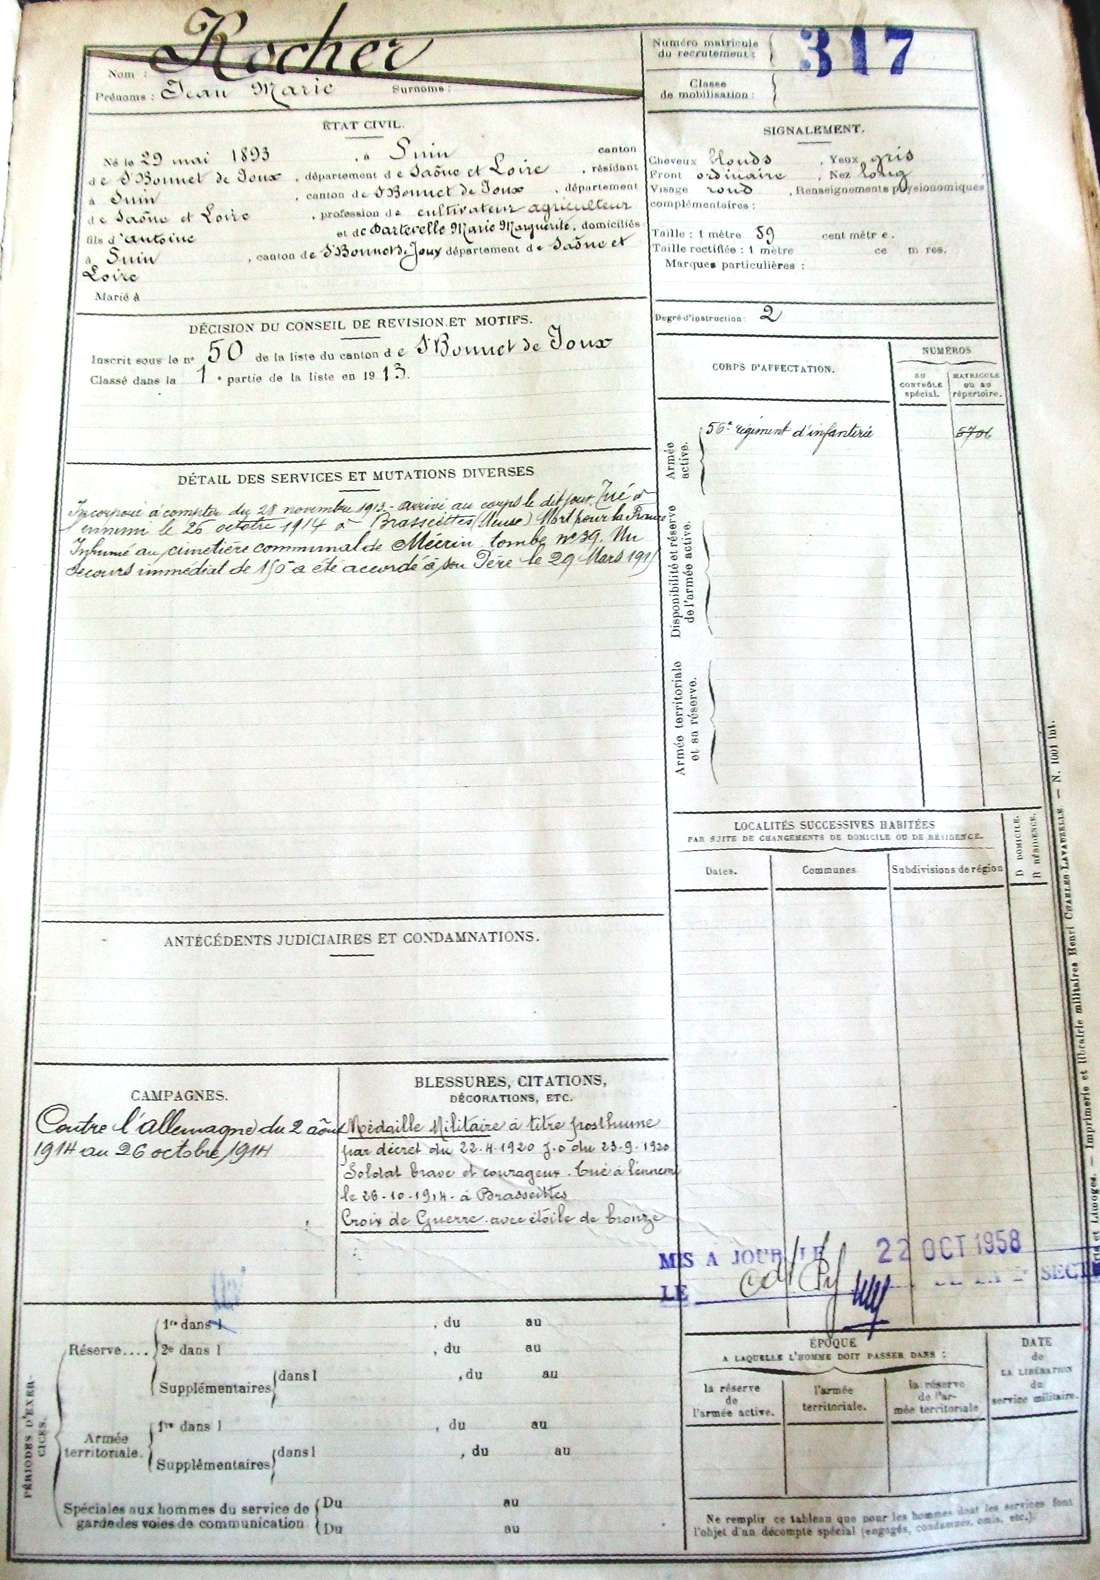 Nom : Rocher
Prénoms : Jean Marie Surnoms :
Numéro matricule
du recrutement :
317
Classe
de mobilisation :
ÉTAT CIVIL.
Né le 29 mai 1893, à Suin canton
de St Bonnet de Joux, département de Saône et Loire, résidant
à Suin, canton de St Bonnet de Joux, département
de Saône et Loire, profession de cultivateur agriculteur
fils d'Antoine et de Dartevelle Marie Marguerite, domiciliés
à Suin, canton de St Bonnet de Joux département de Saône et
Loire
Marié à
SIGNALEMENT.
Cheveux blonds, Yeux gris
Front ordinaire, Nez long,
Visage rond, Renseignements physionomiques
complémentaires :
Taille : 1 mètre 59 centimètre.
Taille rectifiée : 1 mètre ce m res.
Marques particulières :
Degré d'instruction : 2
DÉCISION DU CONSEIL DE REVISION ET MOTIFS.
Inscrit sous le n° 50 de la liste du canton de St Bonnet de Joux
Classé dans la 1e partie de la liste en 1913.
CORPS D'AFFECTATION.
NUMÉROS
AU
CONTRÔLE
spécial.
MATRICULE
OU AU
répertoire.
Armée
active.
56e régiment d'infanterie
5706
Disponibilité et réserve
de l'armée active.
Armée territoriale
et sa réserve.
DÉTAIL DES SERVICES ET MUTATIONS DIVERSES
Incorporé à compter du 28 novembre 1913 - arrivé au corps le dit jour. Tué à
ennemi le 26 octobre 1914 à Brasseittes (Meuse) Mort pour la France
Inhumé au cimetière communal de Mécrin tombe n° 39. Un
secours immédiat de 150 a été accordé à son Père le 29 Mars 191
LOCALITÉS SUCCESSIVES HABITÉES
PAR SUITE DE CHANGEMENTS DE DOMICILE OU DE RÉSIDENCE.
Dates.
Communes
Subdivisions de région
D DOMICILE.
R RÉSIDENCE.
ANTÉCÉDENTS JUDICIAIRES ET CONDAMNATIONS.
CAMPAGNES.
Contre l'allemagne du 2 août
1914 au 26 octobre 1914
BLESSURES, CITATIONS,
DÉCORATIONS, ETC.
Médaille Militaire à titre posthume
par décret du 22-4-1920 J.O du 23-9-1920
Soldat brave et courageux. Tué à l'ennemi
le 26-10-1914 à Brasseittes
Croix de Guerre avec étoile de bronze
MIS A JOUR LE 22 OCT 1958
LE
SECT
PÉRIODES D'EXER-
CICES.
Réserve....
1re dans l, du au
2e dans l, du au
Supplémentaires dans l, du au
Armée
territoriale.
1re dans l, du au
Supplémentaires dans l, du au
Spéciales aux hommes du service de
garde des voies de communication
Du au
Du au
ÉPOQUE
A LAQUELLE L'HOMME DOIT PASSER DANS :
la réserve
de
l'armée active.
l'armée
territoriale.
la réserve
de l'ar-
mée territoriale
DATE
de
LA LIBÉRATION
du
service militaire.
Ne remplir ce tableau que pour les hommes dont les services font
l'objet d'un décompte spécial (engagés, condamnés, omis, etc.).
et Limoges. — Imprimerie et librairie militaires Henri CHARLES-LAVAUZELLE. — N. 1001 int.